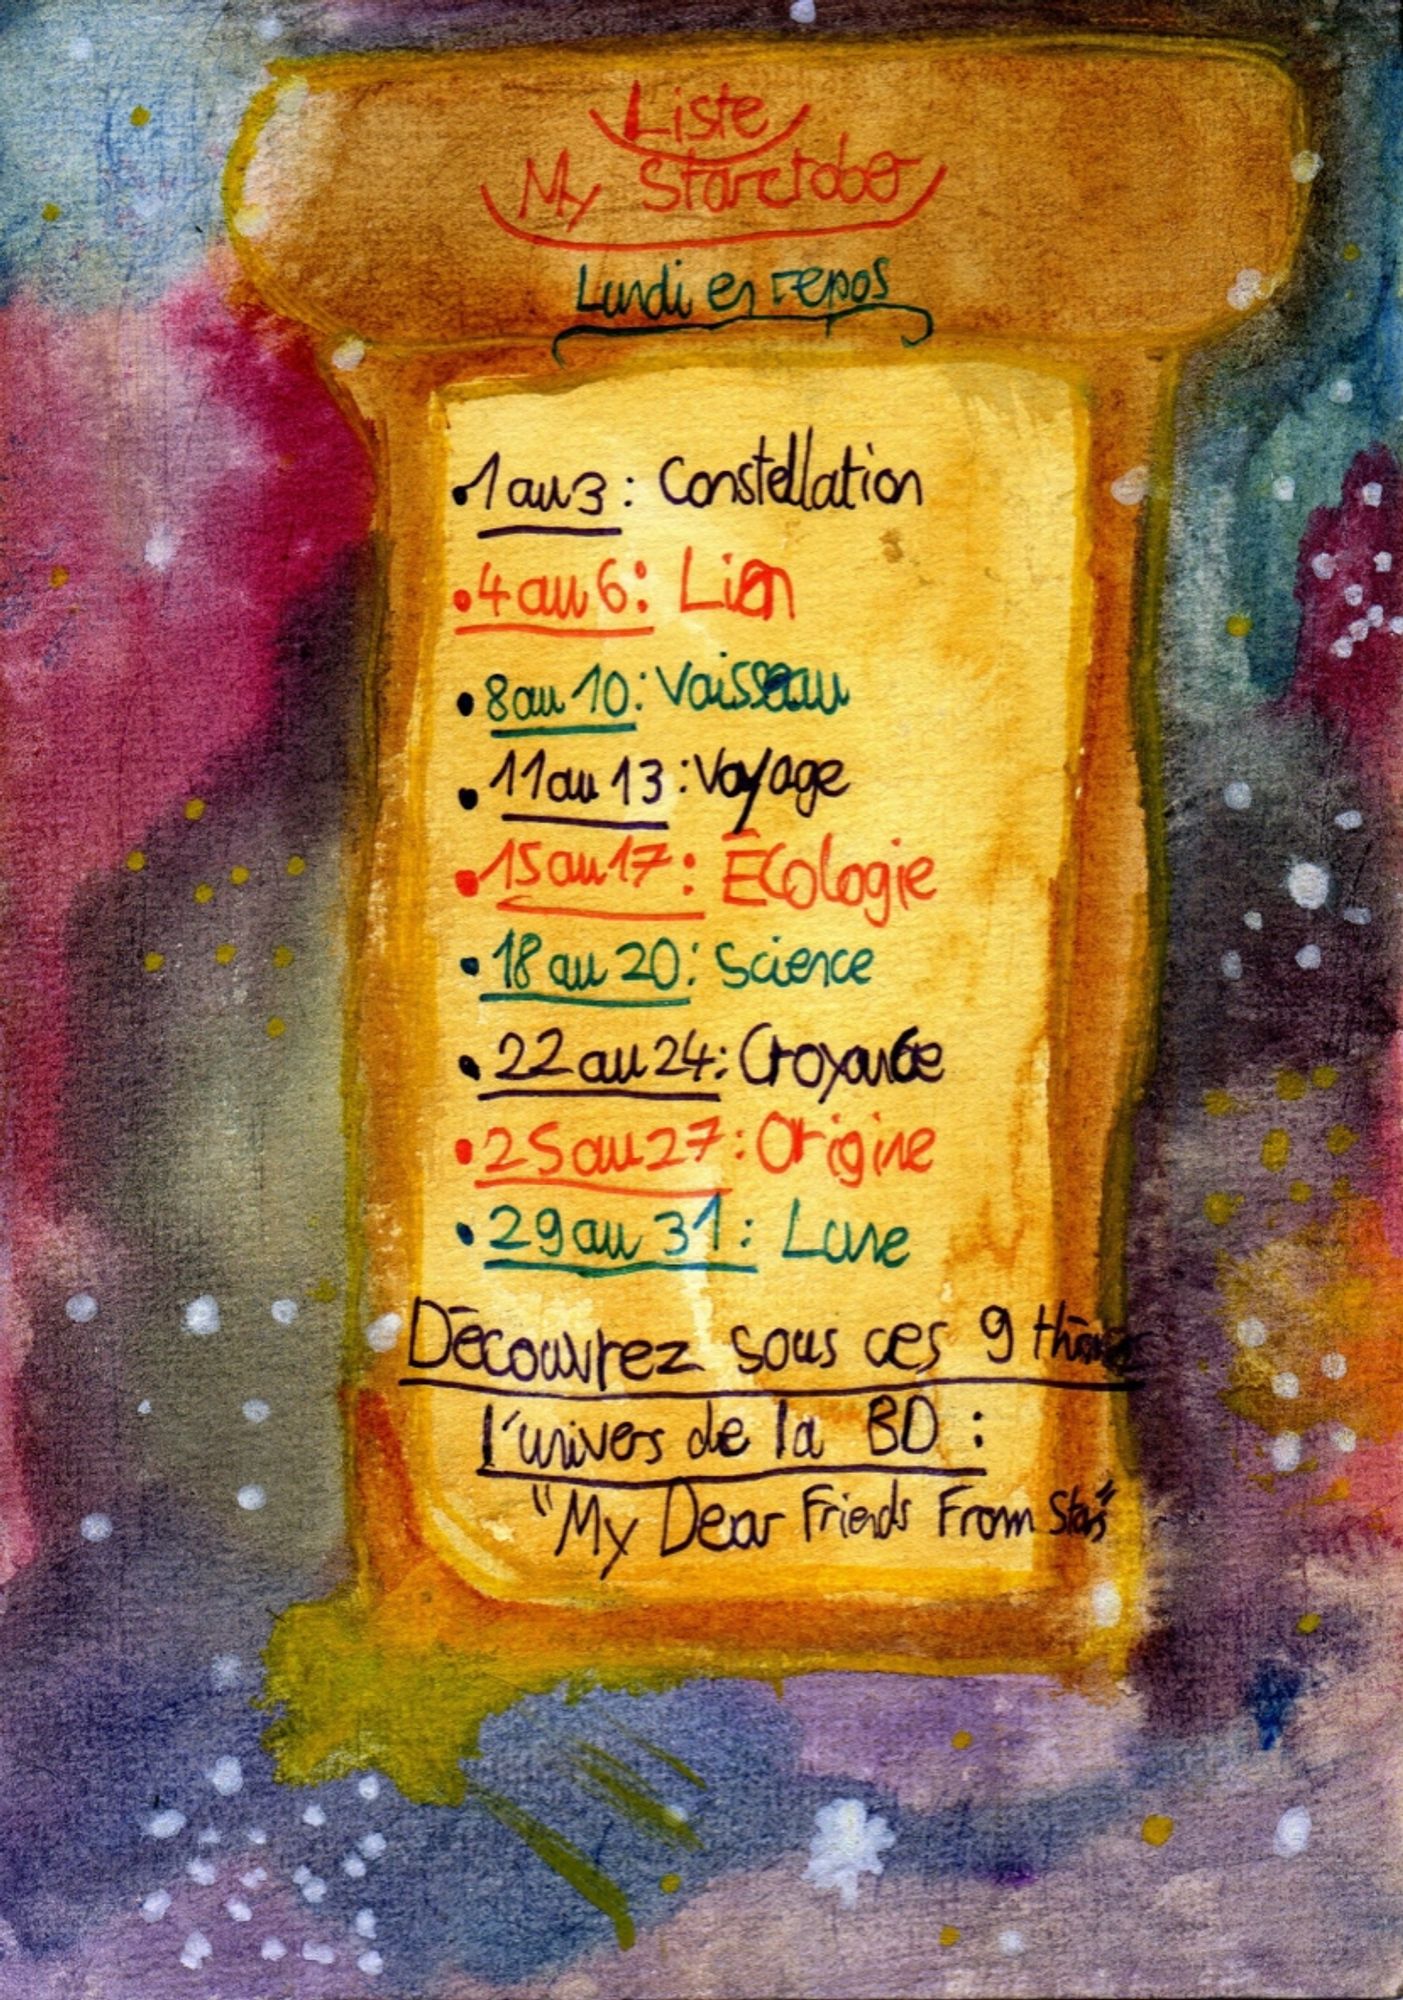 Liste
My Starctober
Lundi en repos
•1 au 3 : Constellation
•4 au 6 : Lien
• 8 au 10 : Vaisseau
• 11 au 13 : Voyage
• 15 au 17 : Écologie
• 18 au 20 : Science
• 22 au 24 : Croyance
• 25 au 27 : Origine
• 29 au 31 : Lune
Découvrez sous ces 9 thèmes
l'univers de la BD :
"My Dear Friends From Stars"